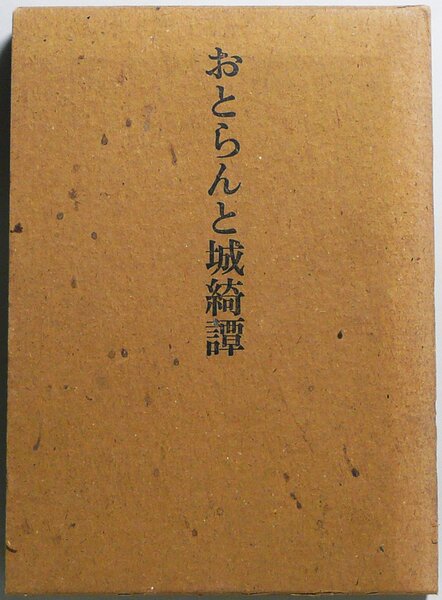 おとらんと城綺譚